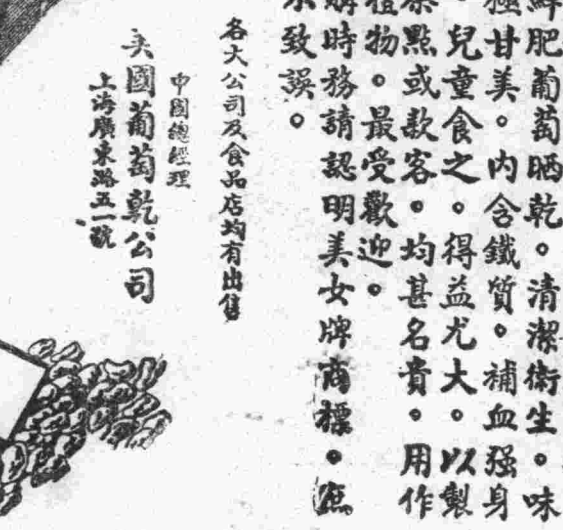 鮮肥葡萄晒乾。清潔衛生。味
極甘美。内含鐵質。補血强身
。兒童食之。得益尤大。以製
茶點或款客。均甚名貴。用作
禮物。最受歡迎。
購時務請認明美女牌商標。庶
不致誤。
各大公司及食品店均有出售
中國總經理
美國葡萄乾公司
上海廣東路五一號